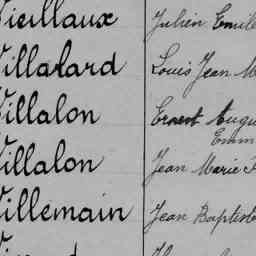 Vieillaux Julien Emile
Villatard Louis Jean M
Villalon Ernest Augu
Emm
Villalon Jean Marie F
Villemain Jean Baptiste